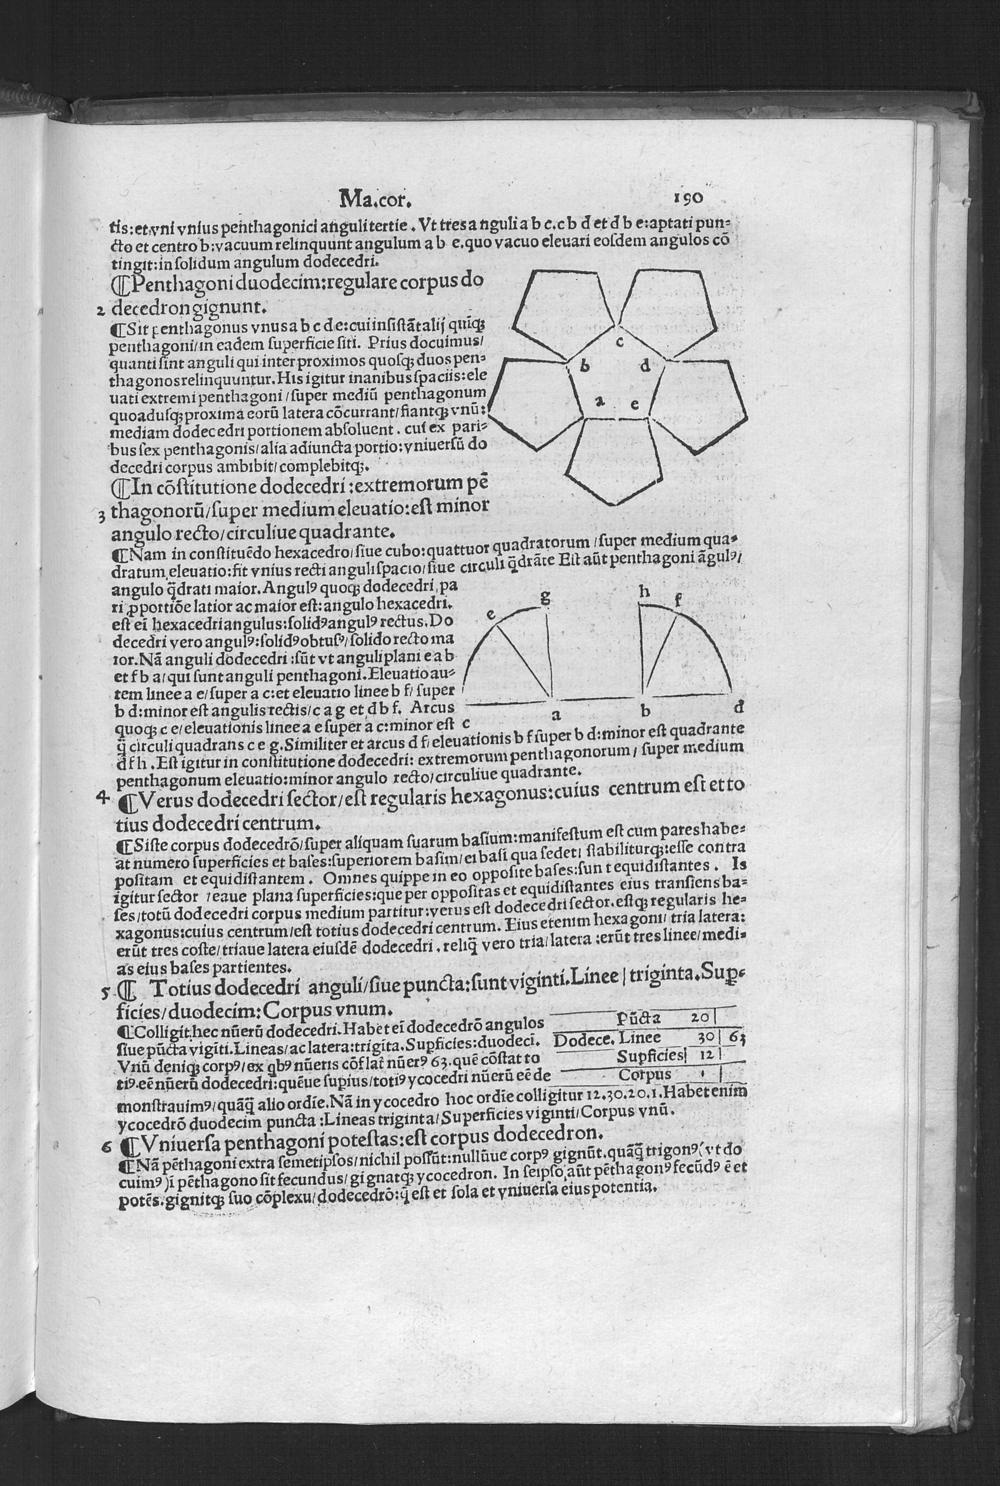 Ma.cor. 190
tis:et vni vnius penthagonici anguli tertie. Vt tres anguli a b c.c b d et d b e:aptati pun=
cto et centro b:vacuum relinquunt angulum a b e.quo vacuo eleuari eosdem angulos cō
tingit:in solidum angulum dodecedri.
⸿Penthagoni duodecim:regulare corpus do
2 decedron gignunt.
⸿Sit penthagonus vnus a b c d e:cui insistāt alij quīqꝫ
penthagoni/in eadem superficie siti. Prius docuimus/
quanti sint anguli qui inter proximos quosqꝫ duos pen=
thagonos relinquuntur. His igitur inanibus spaciis:ele
uati extremi penthagoni/super mediū penthagonum
quoadusqꝫ proxima eorū latera cōcurrant/fiantqꝫ vnū:
mediam dodecedri portionem absoluent. cui ex pari=
bus sex penthagonis/alia adiuncta portio:vniuersū do
decedri corpus ambibit/complebitqꝫ.
c
b d
a e
⸿In cōstitutione dodecedri:extremorum pē
3 thagonorū/super medium eleuatio:est minor
angulo recto/circuliue quadrante.
⸿Nam in constituēdo hexacedro/siue cubo:quattuor quadratorum/super medium qua=
dratum eleuatio:fit vnius recti anguli spacio/siue circuli q̄drāte Est aūt penthagoni āgulꝰ/
angulo q̄drati maior. Angulꝰ quoqꝫ dodecedri pa
ri ꝓportiōe latior ac maior est:angulo hexacedri.
est eī hexacedri angulus:solidꝰ angulꝰ rectus. Do
decedri vero angulꝰ:solidꝰ obtusꝰ/solido recto ma
ior. Nā anguli dodecedri:sūt vt anguli plani e a b
et f b a/qui sunt anguli penthagoni. Eleuatio au=
tem linee a e/super a c:et eleuatio linee b f/super
b d:minor est angulis rectis/c a g et d b f. Arcus
quoqꝫ c e/eleuationis linee a e super a c:minor est
q̄ circuli quadrans c e g. Similiter et arcus d f/eleuationis b f super b d:minor est quadrante
d f h. Est igitur in constitutione dodecedri:extremorum penthagonorum/super medium
penthagonum eleuatio:minor angulo recto/circuliue quadrante.
e g h f
c a b d
4 ⸿Verus dodecedri sector/est regularis hexagonus:cuius centrum est et to
tius dodecedri centrum.
⸿Siste corpus dodecedrō/super aliquam suarum basium:manifestum est cum pares habe=
at numero superficies et bases:superiorem basim/ei basi qua sedet/stabiliturqꝫ:esse contra
positam et equidistantem. Omnes quippe in eo opposite bases:sunt equidistantes. Is
igitur sector/eaue plana superficies:que per oppositas et equidistantes eius transiens ba=
ses/totū dodecedri corpus medium partitur:verus est dodecedri sector. estqꝫ regularis he=
xagonus:cuius centrum/est totius dodecedri centrum. Eius etenim hexagoni/tria latera:
erūt tres coste/triaue latera eiusdē dodecedri. reliq̄ vero tria/latera:erūt tres linee/medi=
as eius bases partientes.
5 ⸿ Totius dodecedri anguli/siue puncta:sunt viginti. Linee/triginta. Suꝑ=
ficies/duodecim:Corpus vnum.
⸿Colligit hec nūerū dodecedri. Habet eī dodecedrō angulos
siue pūcta vigīti. Lineas/ac latera:trigīta. Supficies:duodecī.
Vnū deniqꝫ corpꝰ/ex qbꝰ nūeris cōflat nūerꝰ 63. quē cōstat to
tiꝰ.eē nūerū dodecedri:quēue supius/totiꝰ ycocedri nūerū eē de
monstrauimꝰ/quāq̄ alio ordīe. Nā in ycocedro hoc ordīe colligitur 12.30.20.1. Habet enim
ycocedrō duodecim puncta:Lineas triginta/Superficies viginti/Corpus vnū.
Pūcta 20
Dodece. Linee 30 63
Supficies 12
Corpus 1
6 ⸿Vniuersa penthagoni potestas:est corpus dodecedron.
⸿Nā pēthagoni extra semetipsos/nichil possūt:nullūue corpꝰ gignūt. quāq̄ trigonꝰ(vt do
cuimꝰ)ī pēthagono sit fecundus/gignatqꝫ ycocedron. In seipso aūt pēthagonꝰ fecūdꝰ ē et
potēs. gignitqꝫ suo cōplexu/dodecedrō:q̄ est et sola et vniuersa eius potentia.